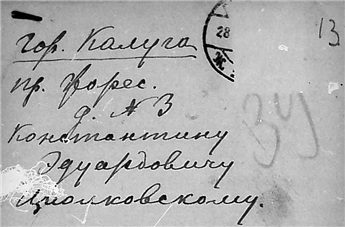 гор. Калуга
28
13
пр. Жорес.
д. № 3
Константину
Эдуардовичу
Циолковскому.